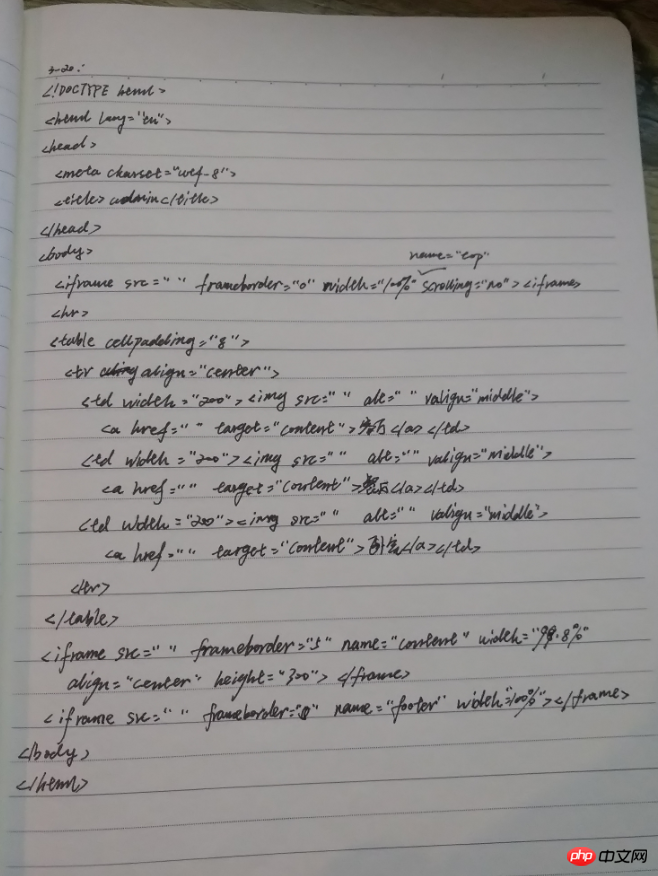 3-20:
<!DOCTYPE html>
<html lang="en">
<head>
<meta charset="utf-8">
<title>admin</title>
</head>
<body>
name="top"
<iframe src=" " frameborder="0" width="100%" scrolling="no"><iframe>
<hr>
<table cellpadding="8">
<tr align="center">
<td width="200"><img src=" " alt=" " valign="middle">
<a href=" " target="content"></a></td>
<td width="200"><img src=" " alt="" valign="middle">
<a href="" target="content"></a></td>
<td width="200"><img src=" " alt="" valign="middle">
<a href="" target="content"></a></td>
</tr>
</table>
<iframe src=" " frameborder="5" name="content" width="99.8%"
align="center" height="300"></frame>
<iframe src=" " frameborder="0" name="footer" width="100%"></frame>
</body>
</html>
php 中文网